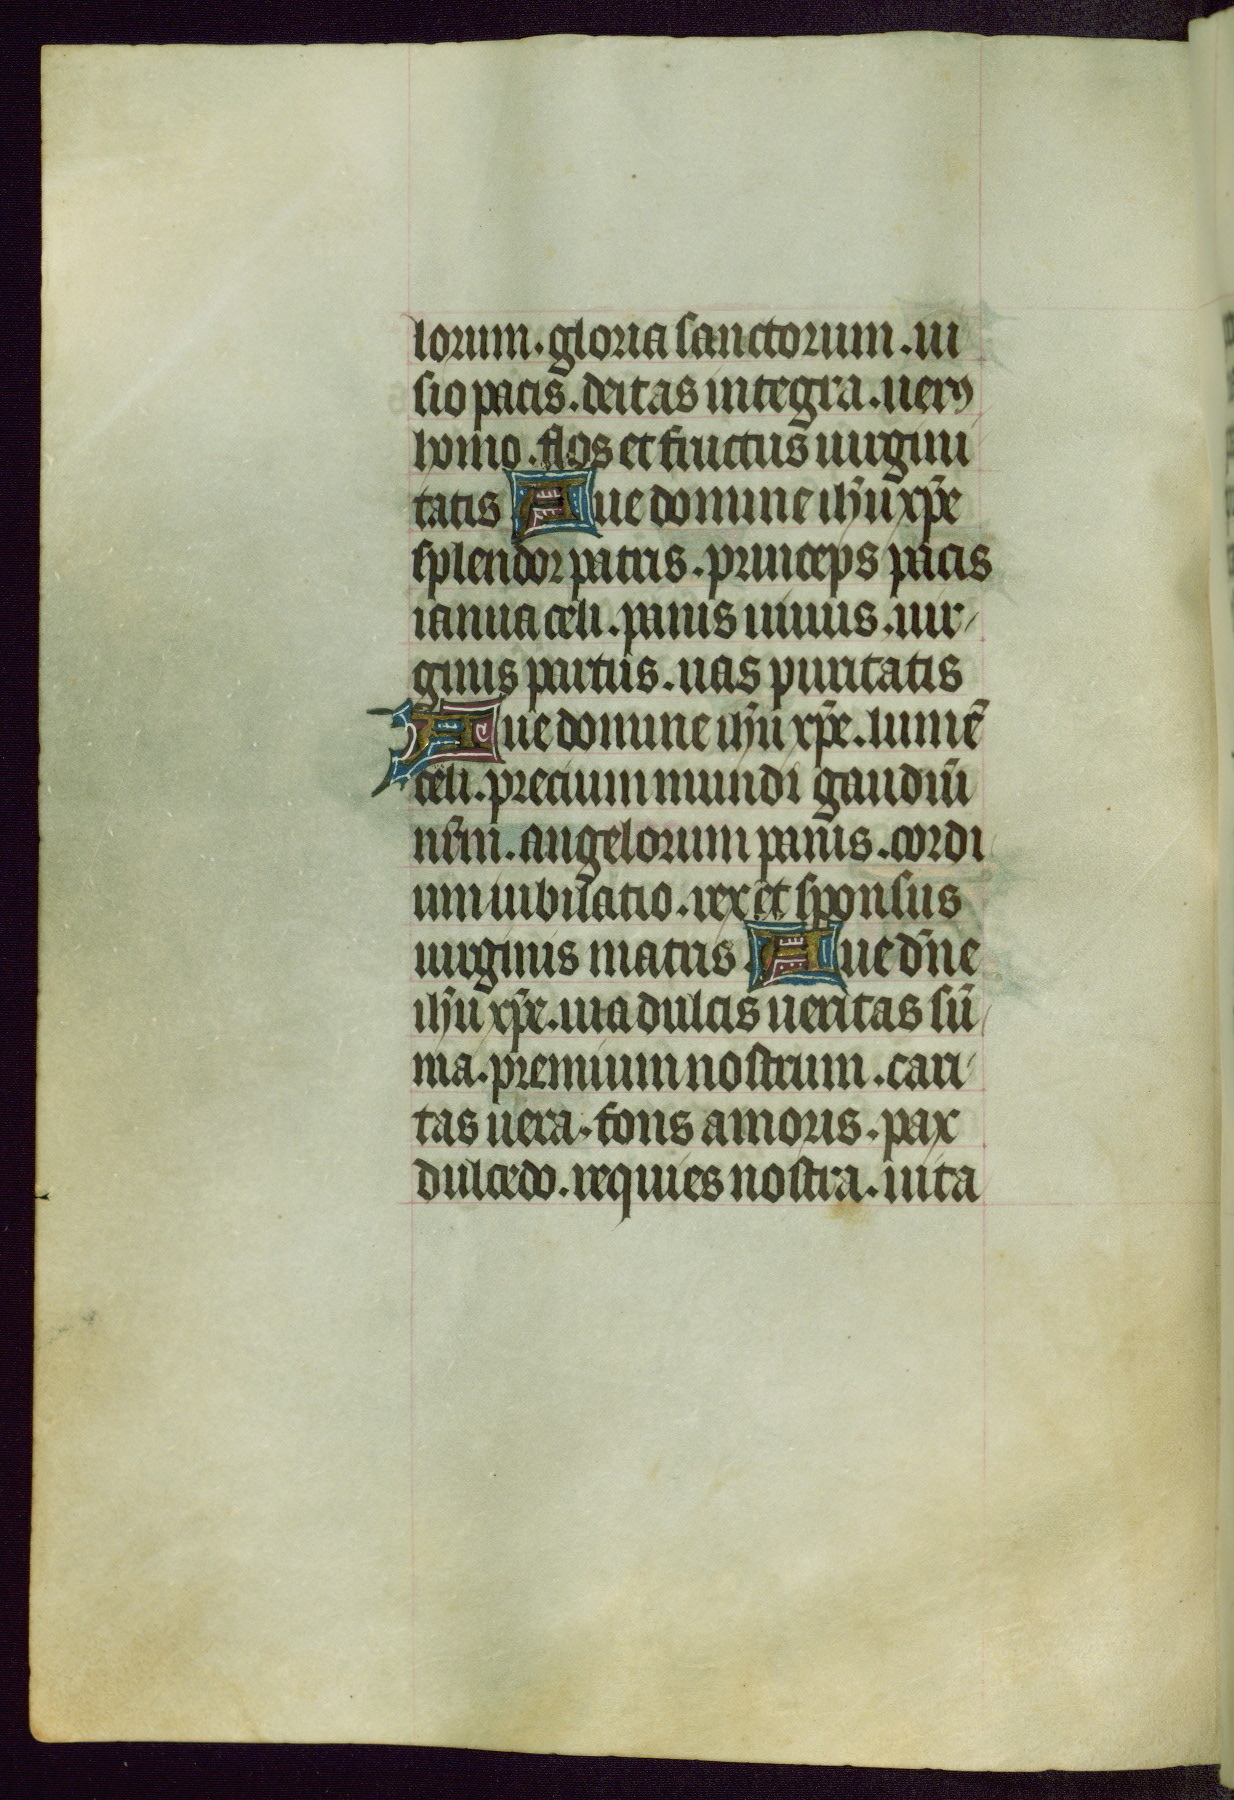 lorum. gloria sanctorum. ui
sio pacis. deitas integra. uerꝰ
homo. flos et fructus uirgini
tatis Aue domine ihū xp̄e
splendor patris. princeps pacis
ianua celi. panis uiuus. uir/
ginis partus. uas puritatis
Aue domine ihū xp̄e. lumē
celi. precium mundi gaudiū
nr̄m. angelorum panis. cordi
um iubilatio. rex et sponsus
uirginis matris. Aue dn̄e
ihū xp̄e. uia dulcis ueritas sū
ma. premium nostrum. cari
tas uera. fons amoris. pax
dulcedo. requies nostra. uita